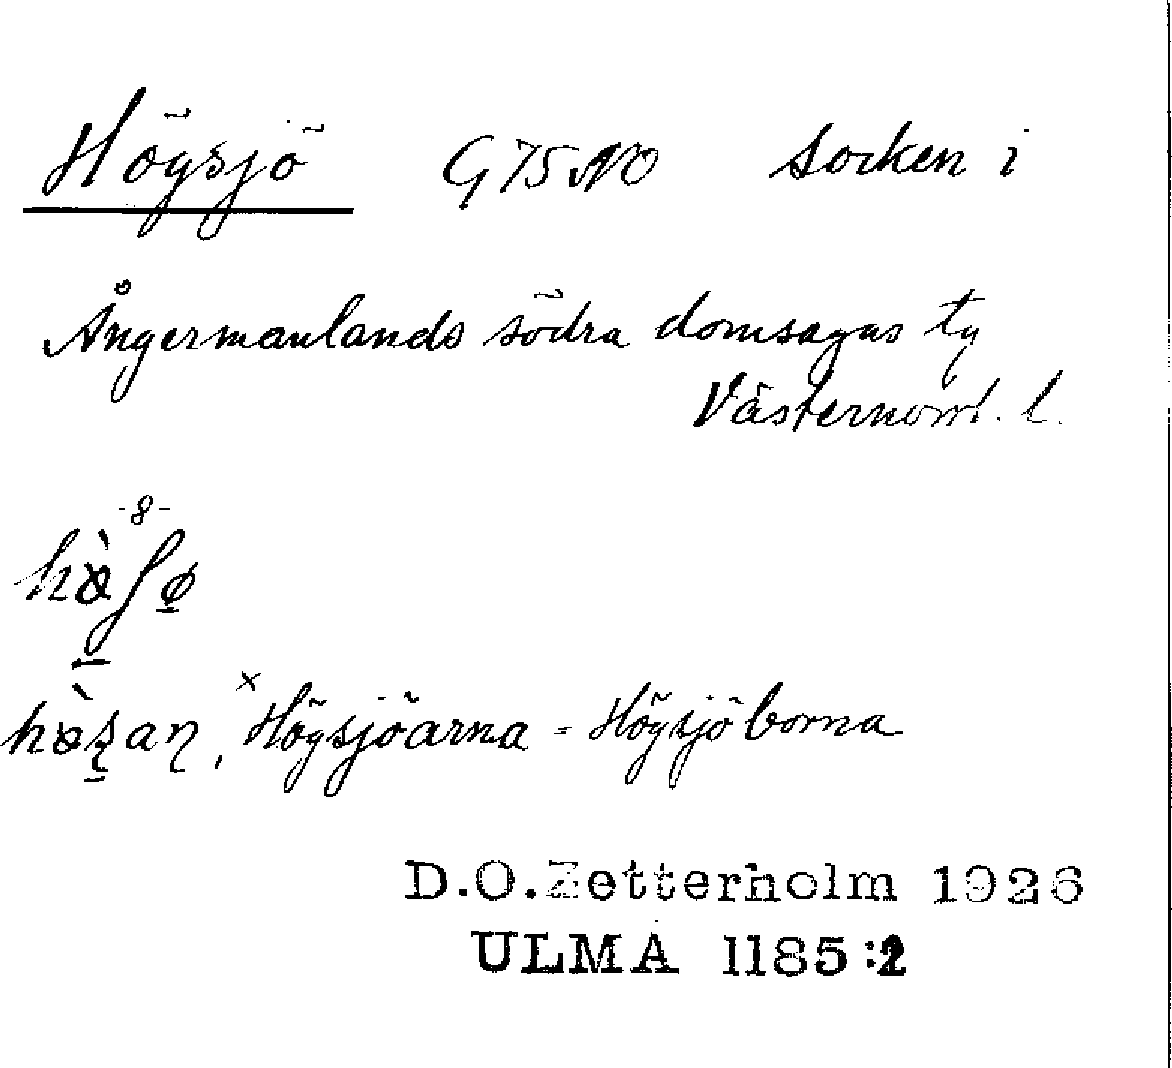 Högsjö G 75 NO Socken i
Ångermanlands södra domsagas tg
Västernorrl. l.
-8-
hὰʃø̱
hὰʂaɳ, ˣHögsjöarna = Högsjöborna
D.O.Zetterholm 1926
ULMA 1185:2